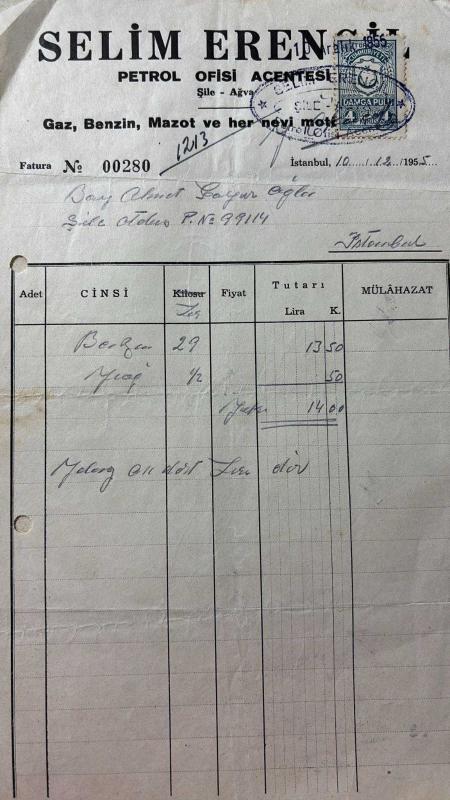 SELİM EREN
10 Aralık 1955
PETROL OFİSİ ACENTESİ
Şile - Ağva
DAMGA PULU
Gaz, Benzin, Mazot ve her nevi mot
1213
Fatura № 00280
İstanbul, 10 / 12 / 1955.
Bay Ahmet
Şile P. № 99114
İstanbul
Adet CİNSİ Kilosu Fiyat Tutarı MÜLÂHAZAT
Lira K.
Benzin 29 13 50
Yağ ½ 50
14 00
Yalnız on dört Lira dır